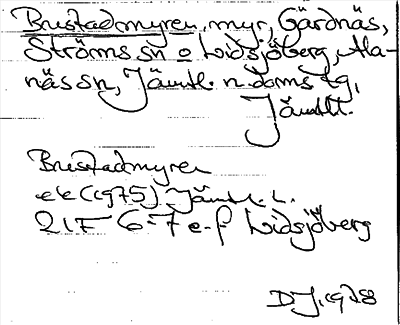 Brustadmyren, myr, Gärdnäs,
Ströms sn o Lidsjöberg, Ala-
näs sn, Jämtl. n. doms tg,
Jämtl.
Brustadmyren
ek (1975) Jämtl. l.
21F 6-7 e-f Lidsjöberg
DJ, 1978